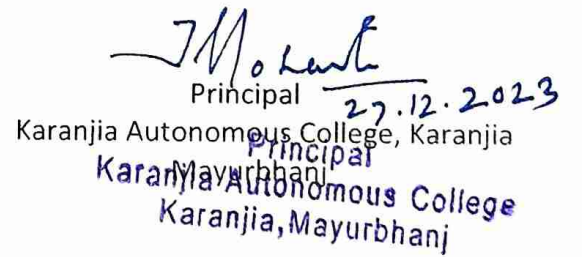 Principal
27.12.2023
Karanjia Autonomous College, Karanjia
Mayurbhanj
Principal
Karanjia Autonomous College
Karanjia, Mayurbhanj